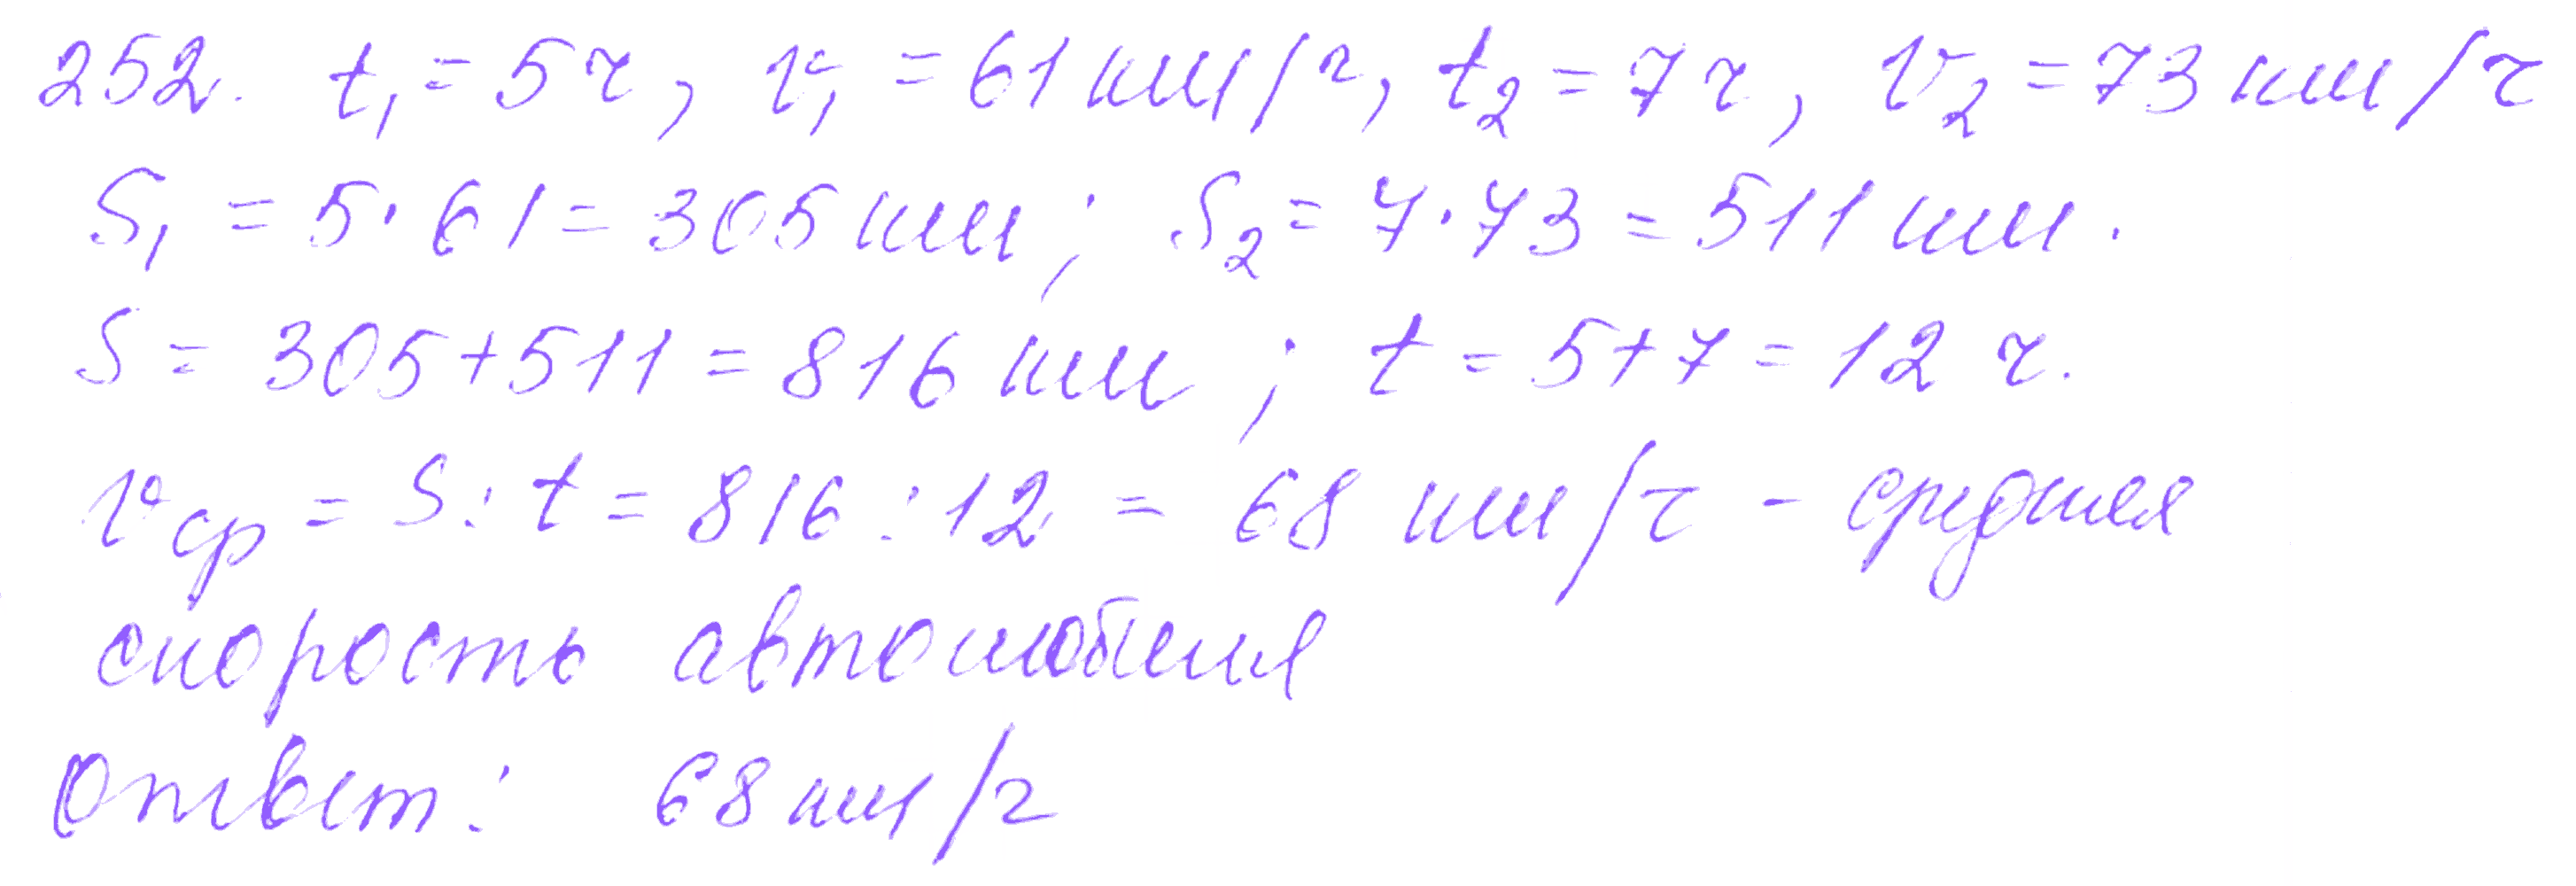 252. t₁ = 5 ч, v₁ = 61 км/ч, t₂ = 7 ч, v₂ = 73 км/ч
S₁ = 5 · 61 = 305 км; S₂ = 7 · 73 = 511 км.
S = 305 + 511 = 816 км; t = 5 + 7 = 12 ч.
vср = S : t = 816 : 12 = 68 км/ч - средняя
скорость автомобиля
Ответ: 68 км/ч